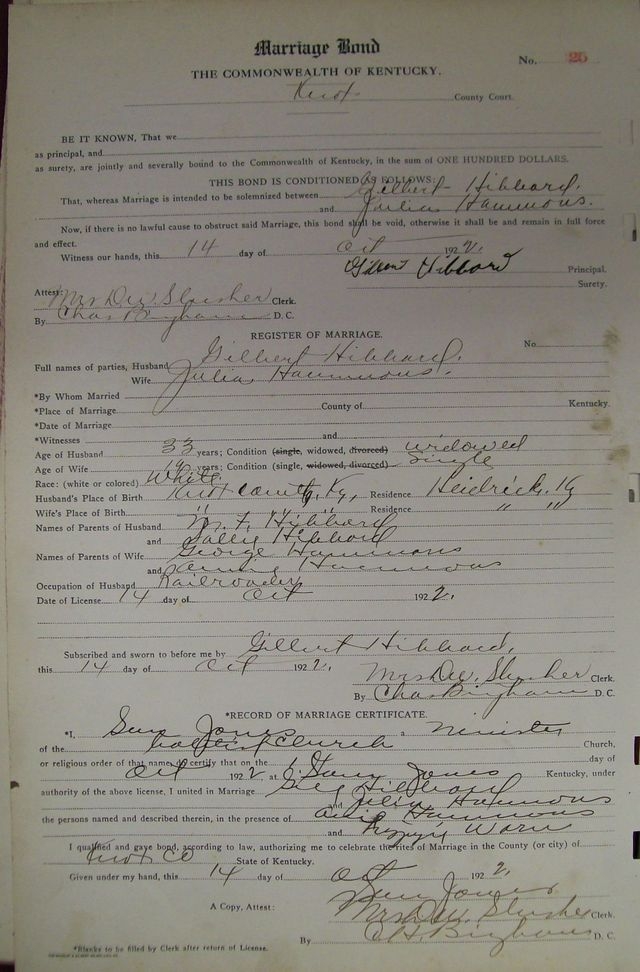 Marriage Bond
No. 25
THE COMMONWEALTH OF KENTUCKY.
Knox County Court.
BE IT KNOWN, That we
as principal, and
as surety, are jointly and severally bound to the Commonwealth of Kentucky, in the sum of ONE HUNDRED DOLLARS.
THIS BOND IS CONDITIONED AS FOLLOWS:
That, whereas Marriage is intended to be solemnized between Gilbert Hibbard,
and Julia Hammons.
Now, if there is no lawful cause to obstruct said Marriage, this bond shall be void, otherwise it shall be and remain in full force
and effect.
Witness our hands, this 14 day of Oct 1922.
Gilbert Hibbard Principal.
Surety.
Attest:
Mrs D.W. Slusher Clerk.
By Chas Bingham D. C.
REGISTER OF MARRIAGE.
No.
Full names of parties, Husband Gilbert Hibbard,
Wife Julia Hammons.
*By Whom Married
*Place of Marriage County of Kentucky.
*Date of Marriage
*Witnesses and
Age of Husband 33 years; Condition (single, widowed, divorced) widowed
Age of Wife 19 years; Condition (single, widowed, divorced) Single
Race: (white or colored) White
Husband's Place of Birth Knox County, Ky, Residence Heidrick, Ky
Wife's Place of Birth " " Residence " "
Names of Parents of Husband Hibbard
and Sallie Hibbard
Names of Parents of Wife George Hammons
and Hammons
Occupation of Husband Railroader
Date of License 14 day of Oct 1922.
Subscribed and sworn to before me by Gilbert Hibbard,
this 14 day of Oct 1922.
Mrs D.W. Slusher Clerk.
By Chas Bingham D. C.
*RECORD OF MARRIAGE CERTIFICATE.
*I, Jones a Minister
of the Baptist Church Church,
or religious order of that name, do certify that on the day of
Oct 1922 at Jones Kentucky, under
authority of the above license, I united in Marriage Hibbard
and Julia Hammons
the persons named and described therein, in the presence of Hammons
and
I qualified and gave bond, according to law, authorizing me to celebrate the rites of Marriage in the County (or city) of
Knox Co State of Kentucky.
Given under my hand, this 14 day of Oct 1922.
Jones
A Copy, Attest: Mrs D.W. Slusher Clerk.
By C H. Bingham D. C.
*Blanks to be filled by Clerk after return of License.